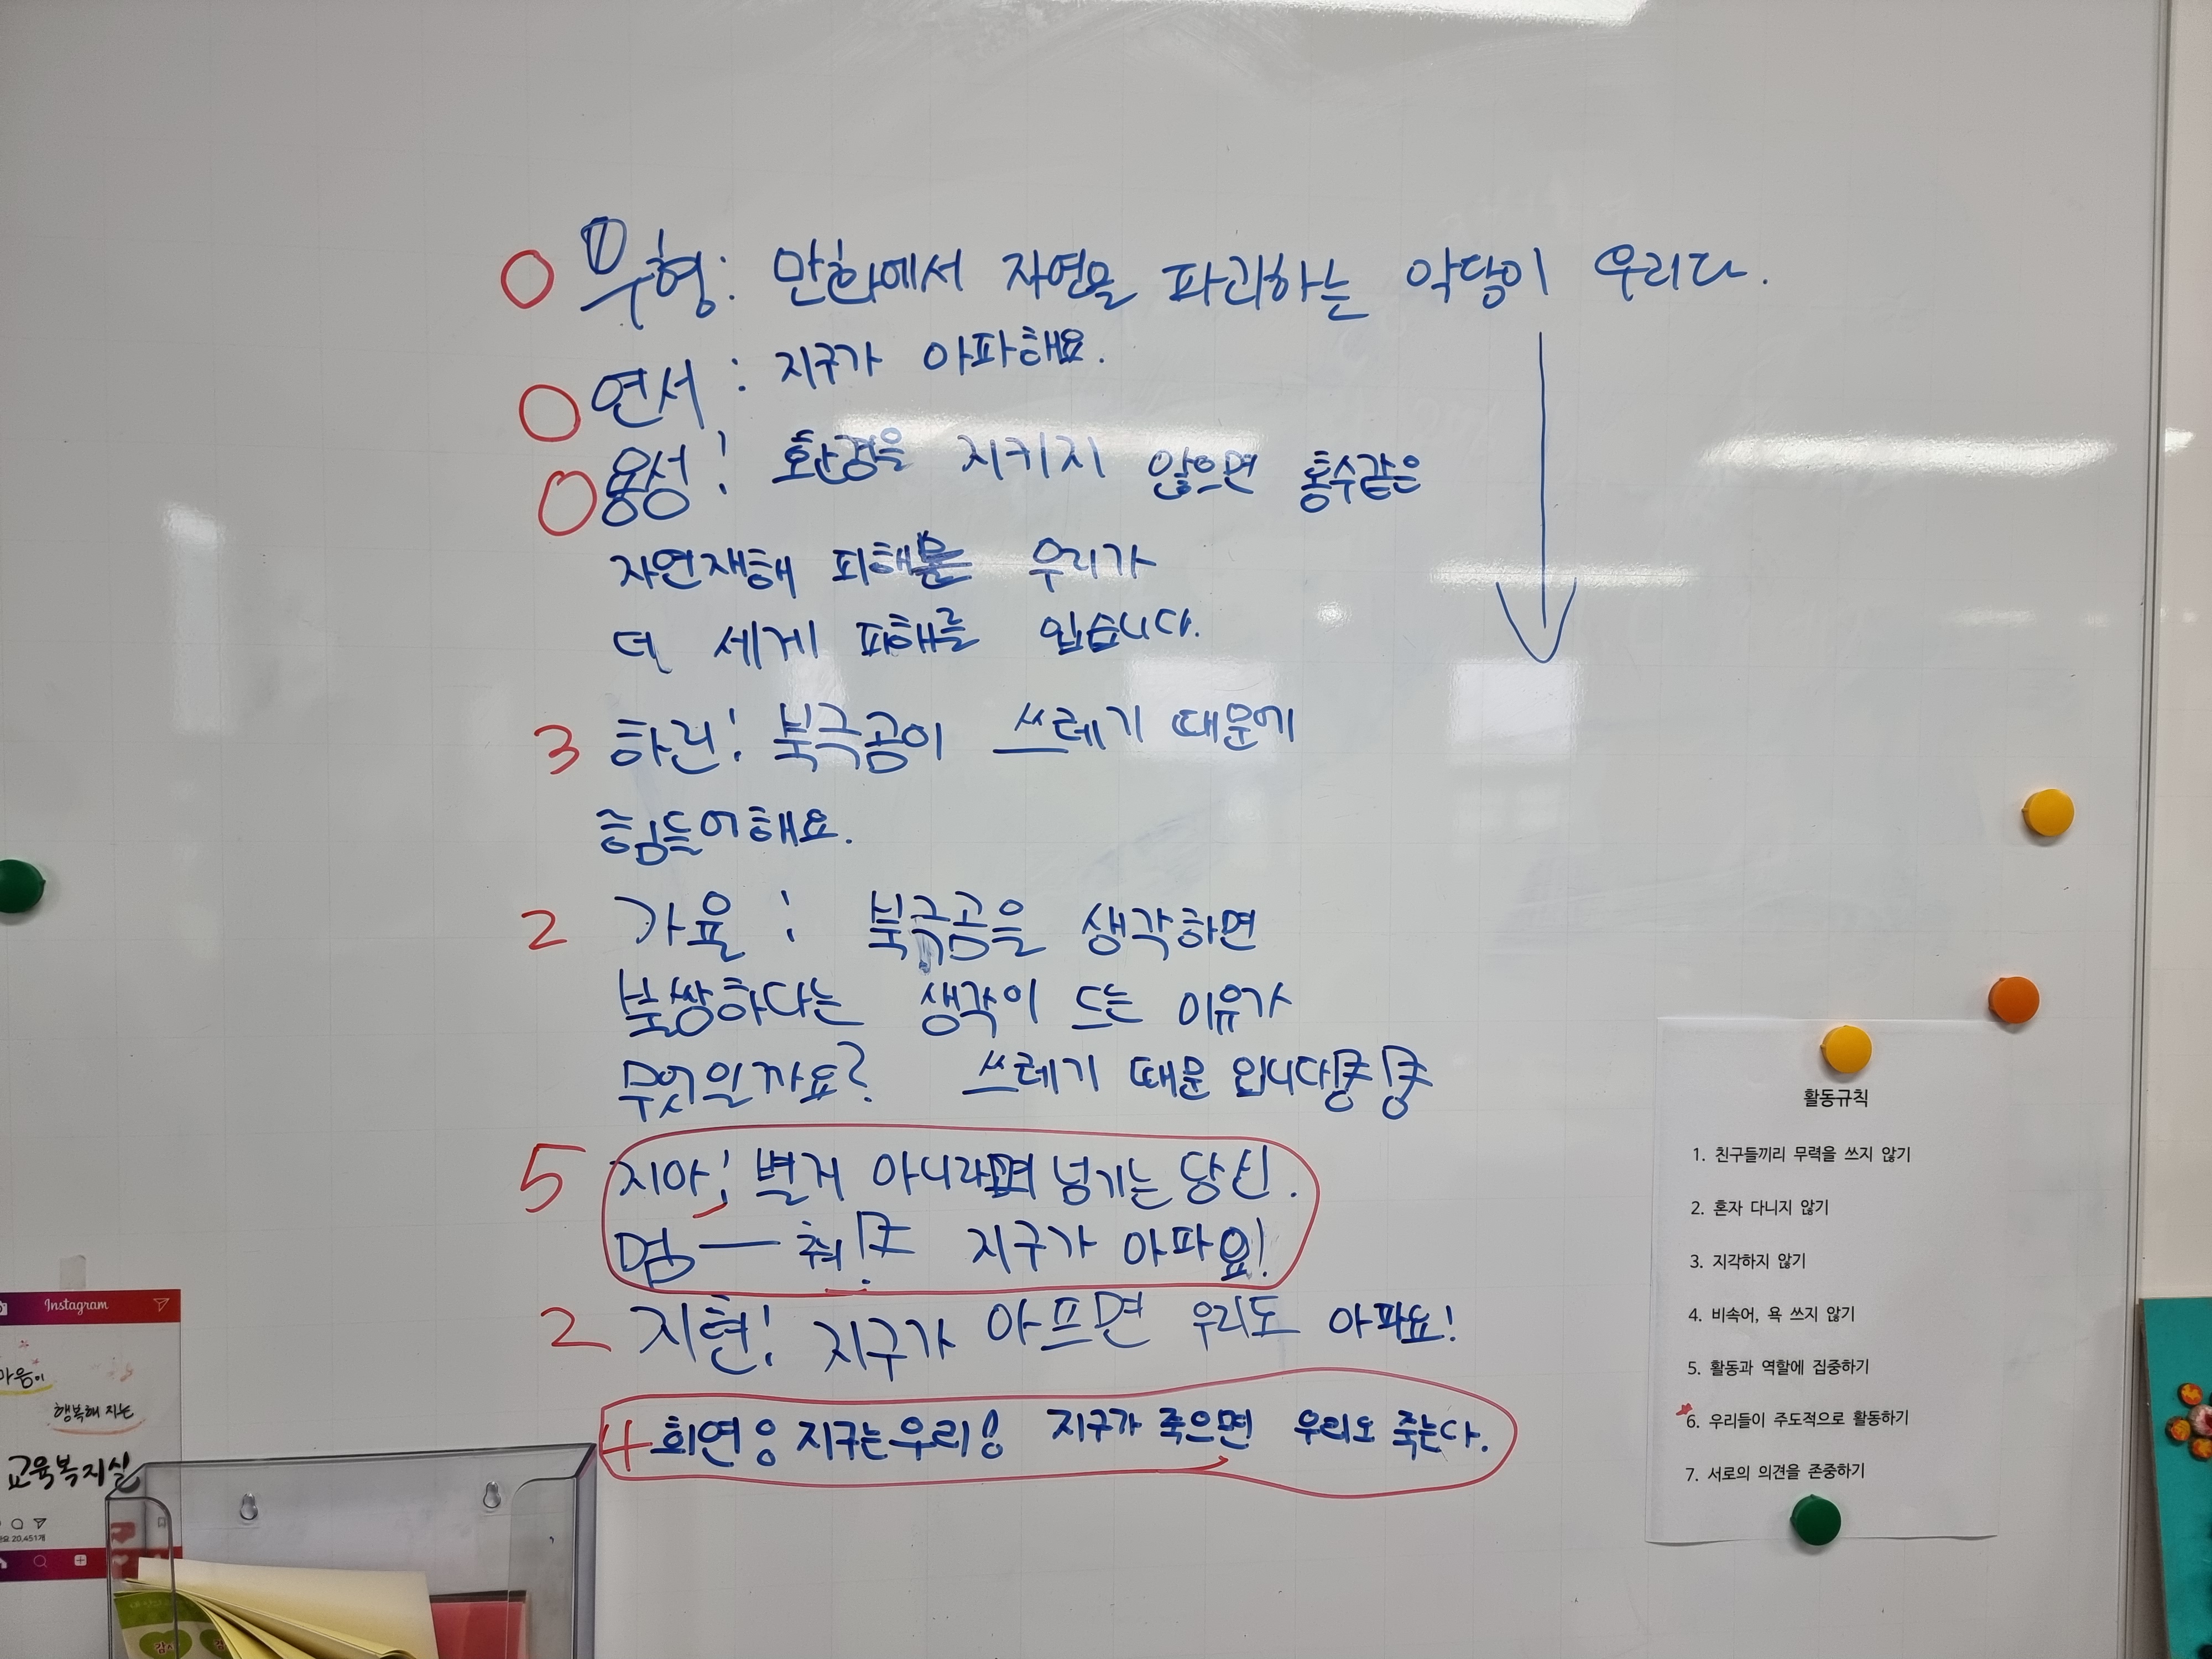 ① 우형: 만화에서 자연을 파괴하는 악당이 우리다.
연서 : 지구가 아파해요.
용성! 환경을 지키지 않으면 홍수같은
자연재해 피해를 우리가
더 세게 피해를 입습니다.
3 하린! 북극곰이 쓰레기 때문에
힘들어해요.
2 가율 : 북극곰을 생각하면
불쌍하다는 생각이 드는 이유가
무엇일까요? 쓰레기 때문 입니다쿵쿵
5 지아; 별거 아니라며 넘기는 당신.
멈—춰! 지구가 아파요!
2 지현! 지구가 아프면 우리도 아파요!
4 회연: 지구는 우리! 지구가 죽으면 우리도 죽는다.
활동규칙
1. 친구들끼리 무력을 쓰지 않기
2. 혼자 다니지 않기
3. 지각하지 않기
4. 비속어, 욕 쓰지 않기
5. 활동과 역할에 집중하기
6. 우리들이 주도적으로 활동하기
7. 서로의 의견을 존중하기
Instagram
마음이
행복해 지는
교육복지실
20,451개
감사